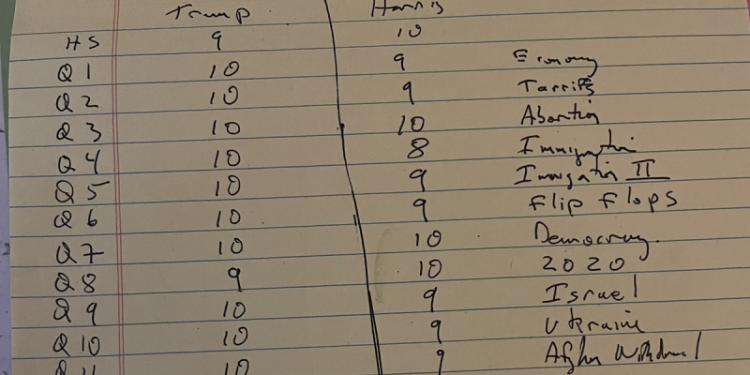 Trump Harris
HS 9 10
Q1 10 9 Economy
Q2 10 9 Tarriffs
Q3 10 10 Abortion
Q4 10 8 Immigration
Q5 10 9 Immigration II
Q6 10 9 flip flops
Q7 10 10 Democracy
Q8 9 10 2020
Q9 10 9 Israel
Q10 10 9 Ukraine
Q11 10 9 Afghan Withdrawal